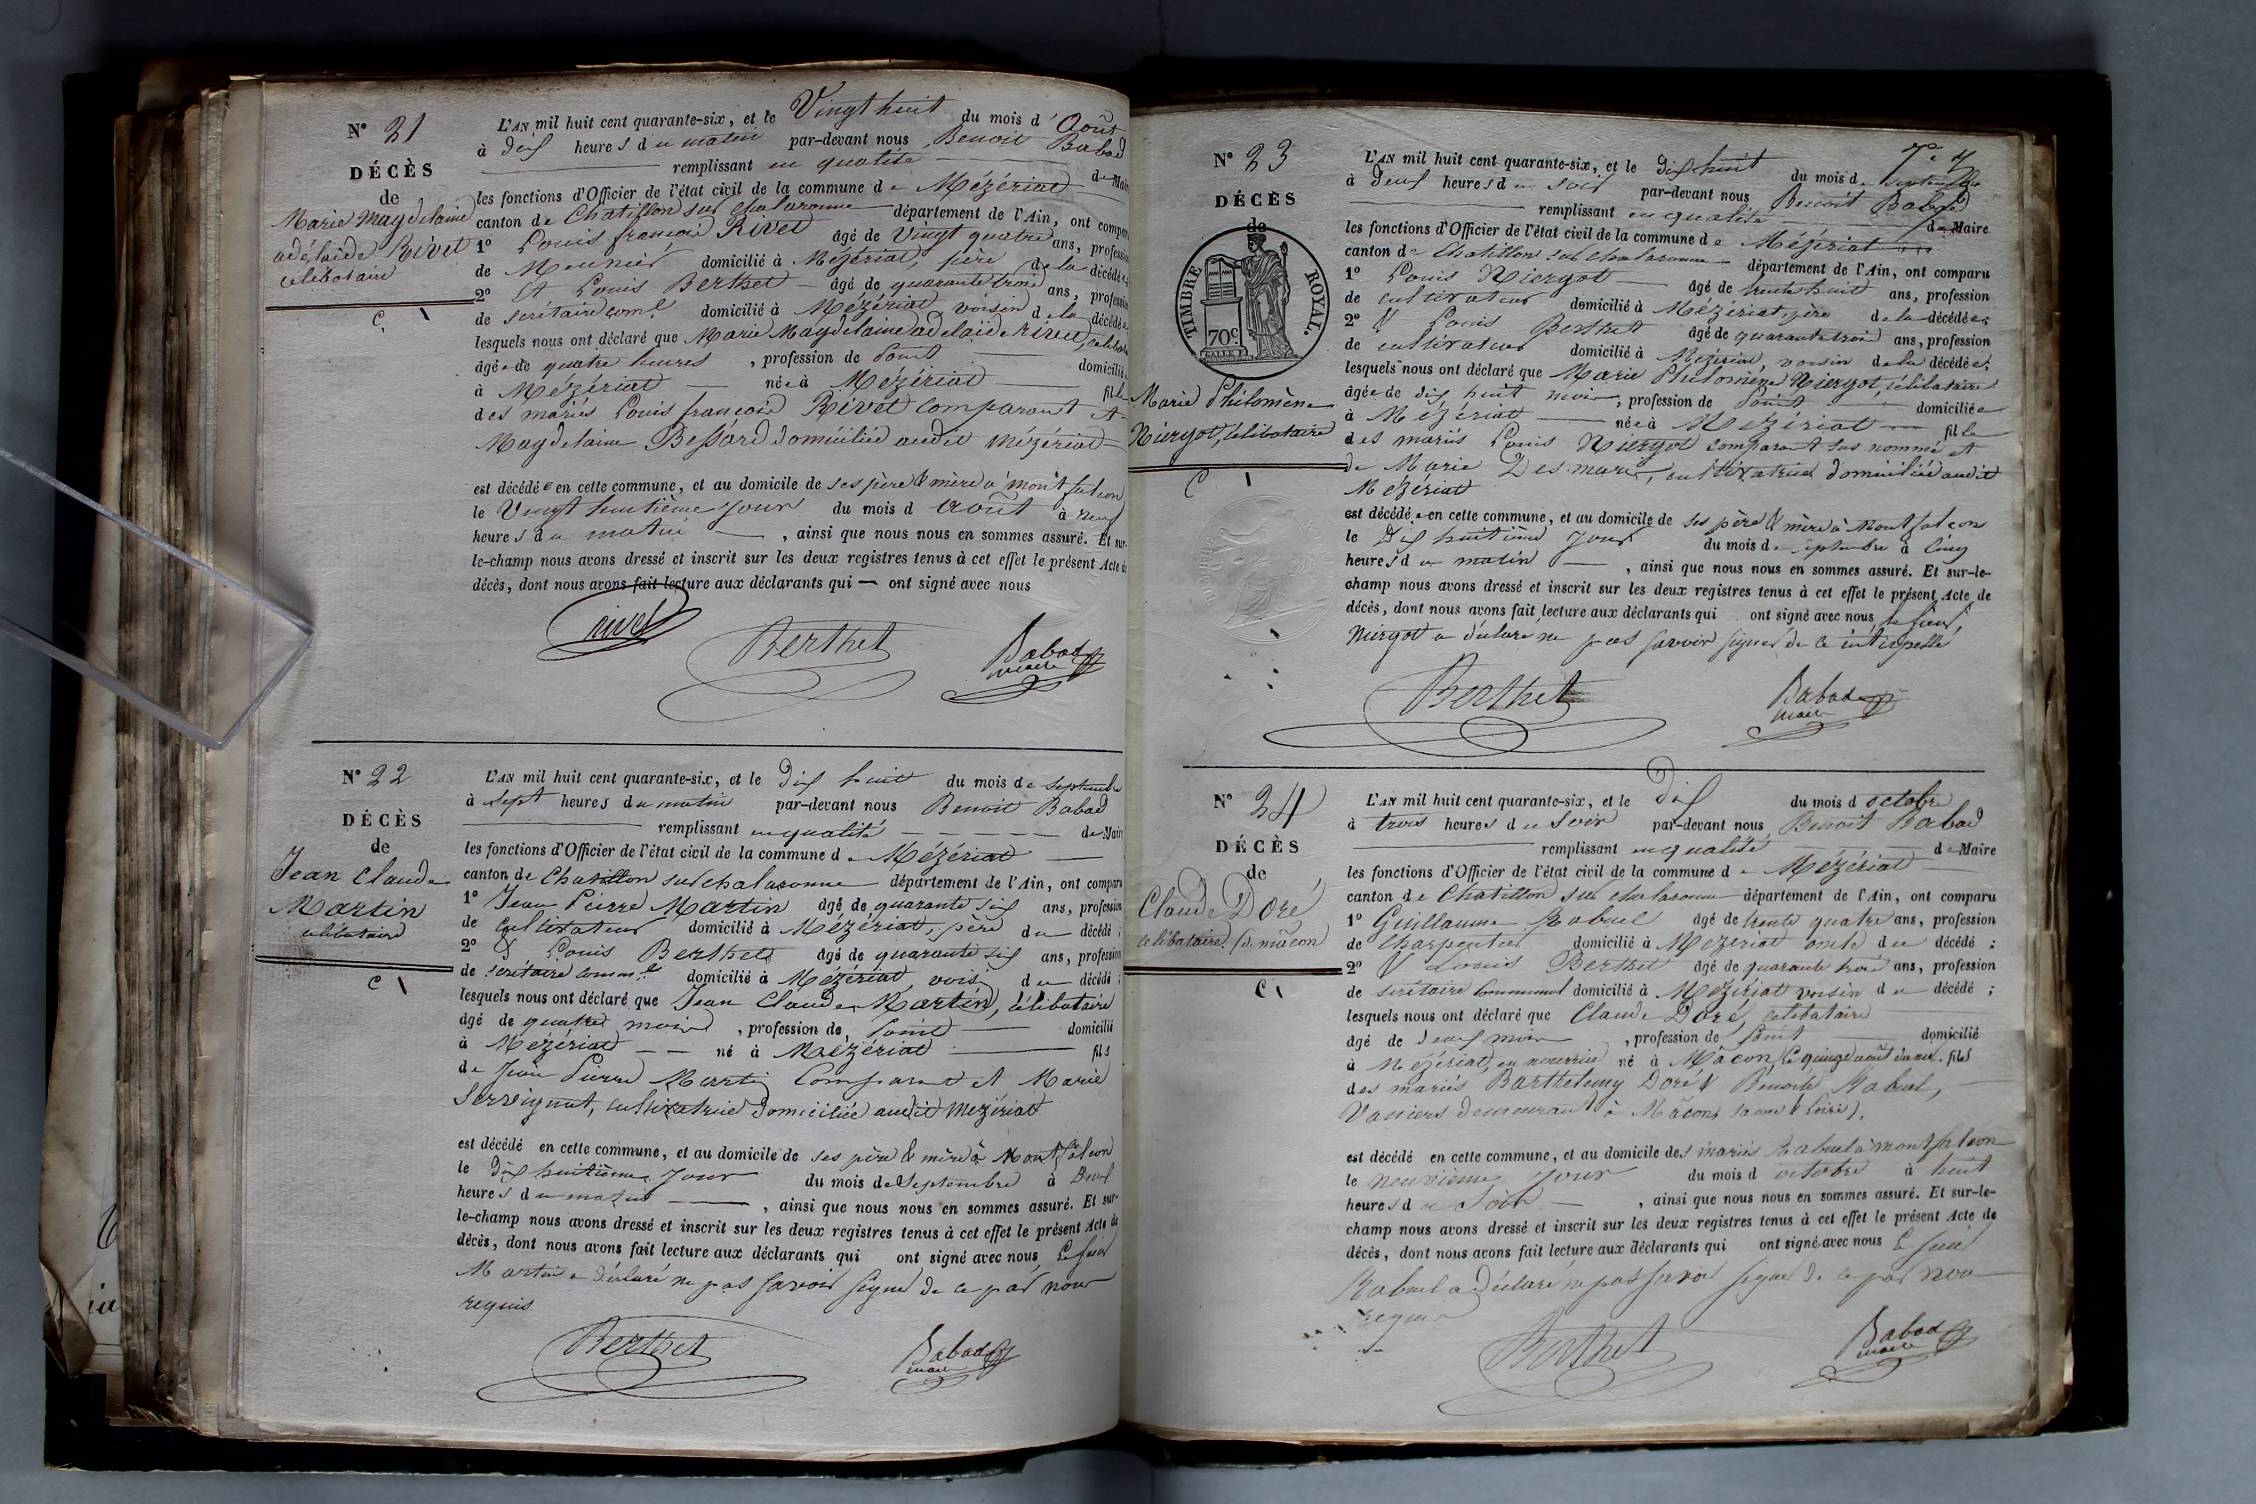 N° 21
DÉCÈS
de
Marie Magdelaine
adélaïde Rivet
célibataire
L'AN mil huit cent quarante-six, et le Vingt huit du mois d'Août
à dix heures du matin par-devant nous Benoit Babad
remplissant en qualité de Maire
les fonctions d'Officier de l'état civil de la commune de Mézériat
canton de Chatillon sur chalaronne département de l'Ain, ont comparu
1° Louis françois Rivet âgé de Vingt quatre ans, profession
de Meunier domicilié à Mézériat, père de la décédée
2° Et Louis Berthet âgé de quarante trois ans, profession
de secrétaire com.l domicilié à Mézériat voisin de la décédée
lesquels nous ont déclaré que Marie Magdelaine adelaïde rivet, célibataire
âgée de quatre heures, profession de Point domiciliée
à Mézériat née à Mézériat fille
des mariés Louis françois Rivet comparant et
Magdelaine Bessard domiciliée audit Mézériat
est décédée en cette commune, et au domicile de ses père & mère à montfalcon
le Vingt huitième jour du mois d août à neuf
heures du matin, ainsi que nous nous en sommes assuré. Et sur-
le-champ nous avons dressé et inscrit sur les deux registres tenus à cet effet le présent Acte de
décès, dont nous avons fait lecture aux déclarants qui ont signé avec nous
rivet Berthet Babad
maire
N° 22
DÉCÈS
de
Jean Claude
Martin
célibataire
L'AN mil huit cent quarante-six, et le dix huit du mois de Septembre
à sept heures du matin par-devant nous Benoit Babad
remplissant en qualité de Maire
les fonctions d'Officier de l'état civil de la commune de Mézériat
canton de Chatillon sur chalaronne département de l'Ain, ont comparu
1° Jean Pierre Martin âgé de quarante six ans, profession
de cultivateur domicilié à Mézériat, père du décédé ;
2° & Louis Berthet âgé de quarante six ans, profession
de secrétaire comm.l domicilié à Mézériat, voisin du décédé ;
lesquels nous ont déclaré que Jean Claude Martin, célibataire
âgé de quatre mois, profession de Point domicilié
à Mézériat né à Mézériat fils
de Jean Pierre Martin Comparant et Marie
Servignat, cultivatrice domiciliée audit Mézériat
est décédé en cette commune, et au domicile de ses père & mère à Montfalcon
le dix huitième jour du mois de Septembre à Deux
heures du matin, ainsi que nous nous en sommes assuré. Et sur-
le-champ nous avons dressé et inscrit sur les deux registres tenus à cet effet le présent Acte de
décès, dont nous avons fait lecture aux déclarants qui ont signé avec nous Le sieur
Martin a déclaré ne pas savoir signer de ce par nous
requis
Berthet Babad
maire
N° 23
DÉCÈS
de
TIMBRE ROYAL.
70c
Marie Philomène
Niergot, célibataire
L'AN mil huit cent quarante-six, et le dix huit du mois de septembre
à deux heures du soir par-devant nous Benoit Babad
remplissant en qualité de Maire
les fonctions d'Officier de l'état civil de la commune de Mézériat
canton de Chatillon sur chalaronne département de l'Ain, ont comparu
1° Louis Niergot âgé de trente huit ans, profession
de cultivateur domicilié à Mézériat, père de la décédée ;
2° & Louis Berthet âgé de quarante trois ans, profession
de cultivateur domicilié à Mézériat, voisin de la décédée ;
lesquels nous ont déclaré que Marie Philomène Niergot, célibataire
âgée de dix huit mois, profession de Point domiciliée
à Mézériat née à Mézériat fille
des mariés Louis Niergot comparant sus nommé et
de Marie Desmaris, cultivatrice domiciliée audit
Mézériat
est décédée en cette commune, et au domicile de ses père & mère à Montfalcon
le Dix huitième jour du mois de septembre à Cinq
heures du matin, ainsi que nous nous en sommes assuré. Et sur-le-
champ nous avons dressé et inscrit sur les deux registres tenus à cet effet le présent Acte de
décès, dont nous avons fait lecture aux déclarants qui ont signé avec nous, le sieur
Niergot a déclaré ne pas savoir signer de ce interpellé
Berthet Babad
maire
N° 24
DÉCÈS
de
Claude Doré
célibataire. (d. mâcon)
L'AN mil huit cent quarante-six, et le dix du mois d octobre
à trois heures du soir par-devant nous Benoit Babad
remplissant en qualité de Maire
les fonctions d'Officier de l'état civil de la commune de Mézériat
canton de Chatillon sur chalaronne département de l'Ain, ont comparu
1° Guillaume Rabuel âgé de trente quatre ans, profession
de Charpentier domicilié à Mézériat oncle du décédé ;
2° & Louis Berthet âgé de quarante trois ans, profession
de secrétaire Communal domicilié à Mézériat voisin du décédé ;
lesquels nous ont déclaré que Claude Doré, célibataire
âgé de deux mois, profession de Point domicilié
à Mézériat, en nourrice né à Mâcon, le quinze août dernier. fils
des mariés Barthelemy Doré & Benoite Rabuel,
Vanniers demeurant à Mâcon, Saone & Loire).
est décédé en cette commune, et au domicile des mariés Rabuel à montfalcon
le neuvième jour du mois d octobre à huit
heures du Soir, ainsi que nous nous en sommes assuré. Et sur-le-
champ nous avons dressé et inscrit sur les deux registres tenus à cet effet le présent Acte de
décès, dont nous avons fait lecture aux déclarants qui ont signé avec nous le sieur
Rabuel a déclaré ne pas savoir signer de ce par nous
requis
Berthet Babad
maire